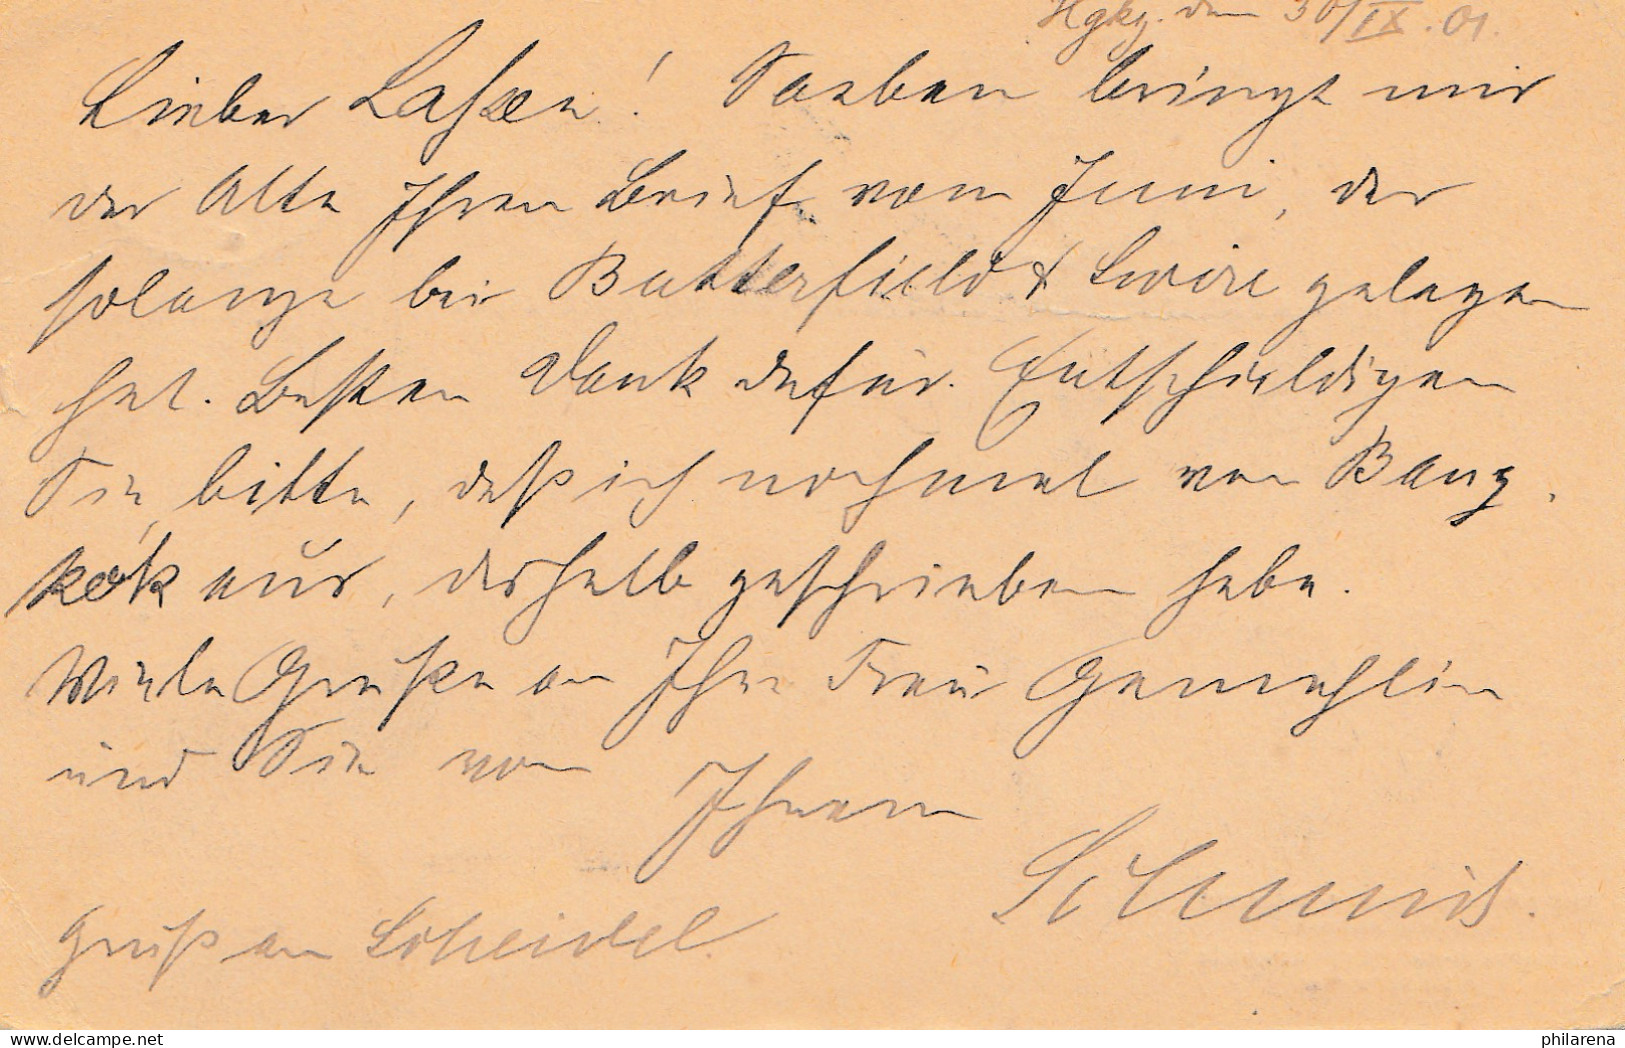 Hgkg. den 30/IX.01.
Lieber Laßen! Soeben bringt mir
der Alte Ihren Brief vom Juni, der
solange bei Butterfield & Swire gelegen
hat. Besten Dank dafür. Entschuldigen
Sie bitte, daß ich nochmal von Bang-
kok aus, deshalb geschrieben habe.
Viele Grüße an Ihre Frau Gemahlin
und Sie von
Ihrem
Schmid.
Gruß an Scheidel.
philarena
delcampe.net